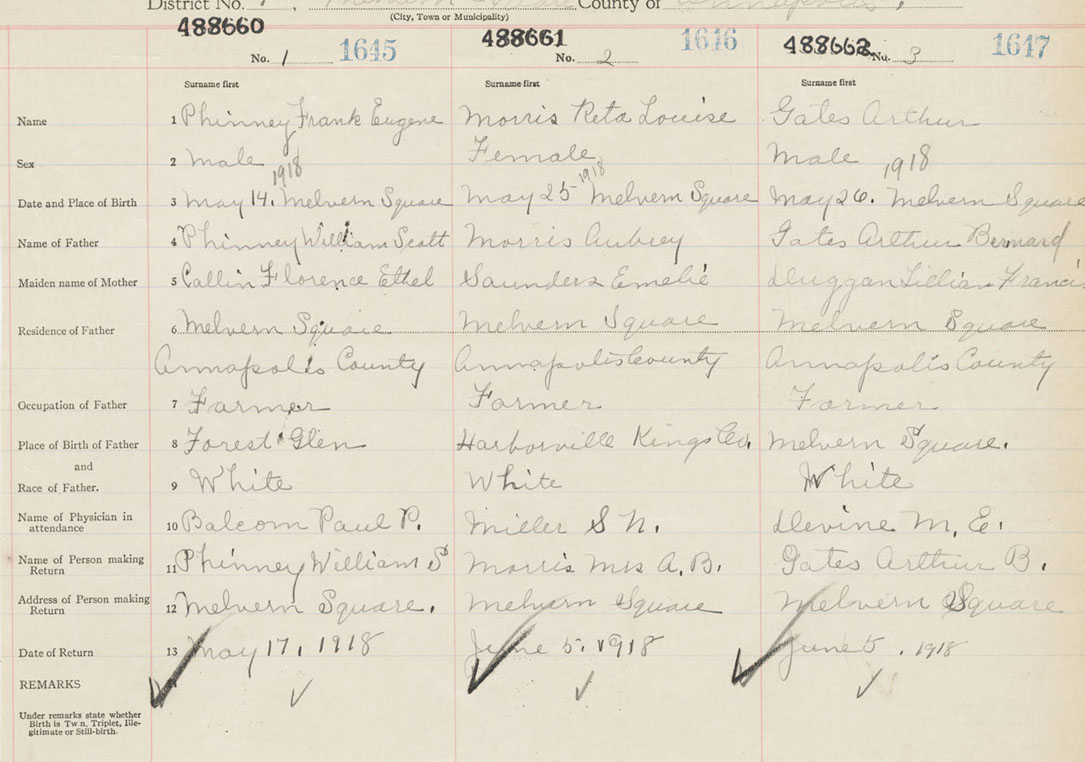 District No. County of
(City, Town or Municipality)
488660 488661 488662
No. 1 1645 No. 2 1646 No. 3 1647
Surname first Surname first Surname first
Name 1 Phinney Frank Eugene Morris Reta Louise Gates Arthur
Sex 2 Male Female Male
1918 1918 1918
Date and Place of Birth 3 May 14. Melvern Square May 25 Melvern Square May 26. Melvern Square
Name of Father 4 Phinney William Scott Morris Aubrey Gates Arthur Bernard
Maiden name of Mother 5 Callin Florence Ethel Saunders Emelie Duggan Lillian Francis
Residence of Father 6 Melvern Square Melvern Square Melvern Square
Annapolis County Annapolis County Annapolis County
Occupation of Father 7 Farmer Farmer Farmer
Place of Birth of Father 8 Forest Glen Harborville Kings Co. Melvern Square.
and
Race of Father. 9 White White White
Name of Physician in
attendance 10 Balcom Paul P. Miller S N. Devine M. E.
Name of Person making
Return 11 Phinney William S Morris Mrs A. B. Gates Arthur B.
Address of Person making
Return 12 Melvern Square. Melvern Square Melvern Square
Date of Return 13 May 17, 1918 June 5. 1918 June 5. 1918
REMARKS
Under remarks state whether
Birth is Tw n, Triplet, Ille-
gitimate or Still-birth.